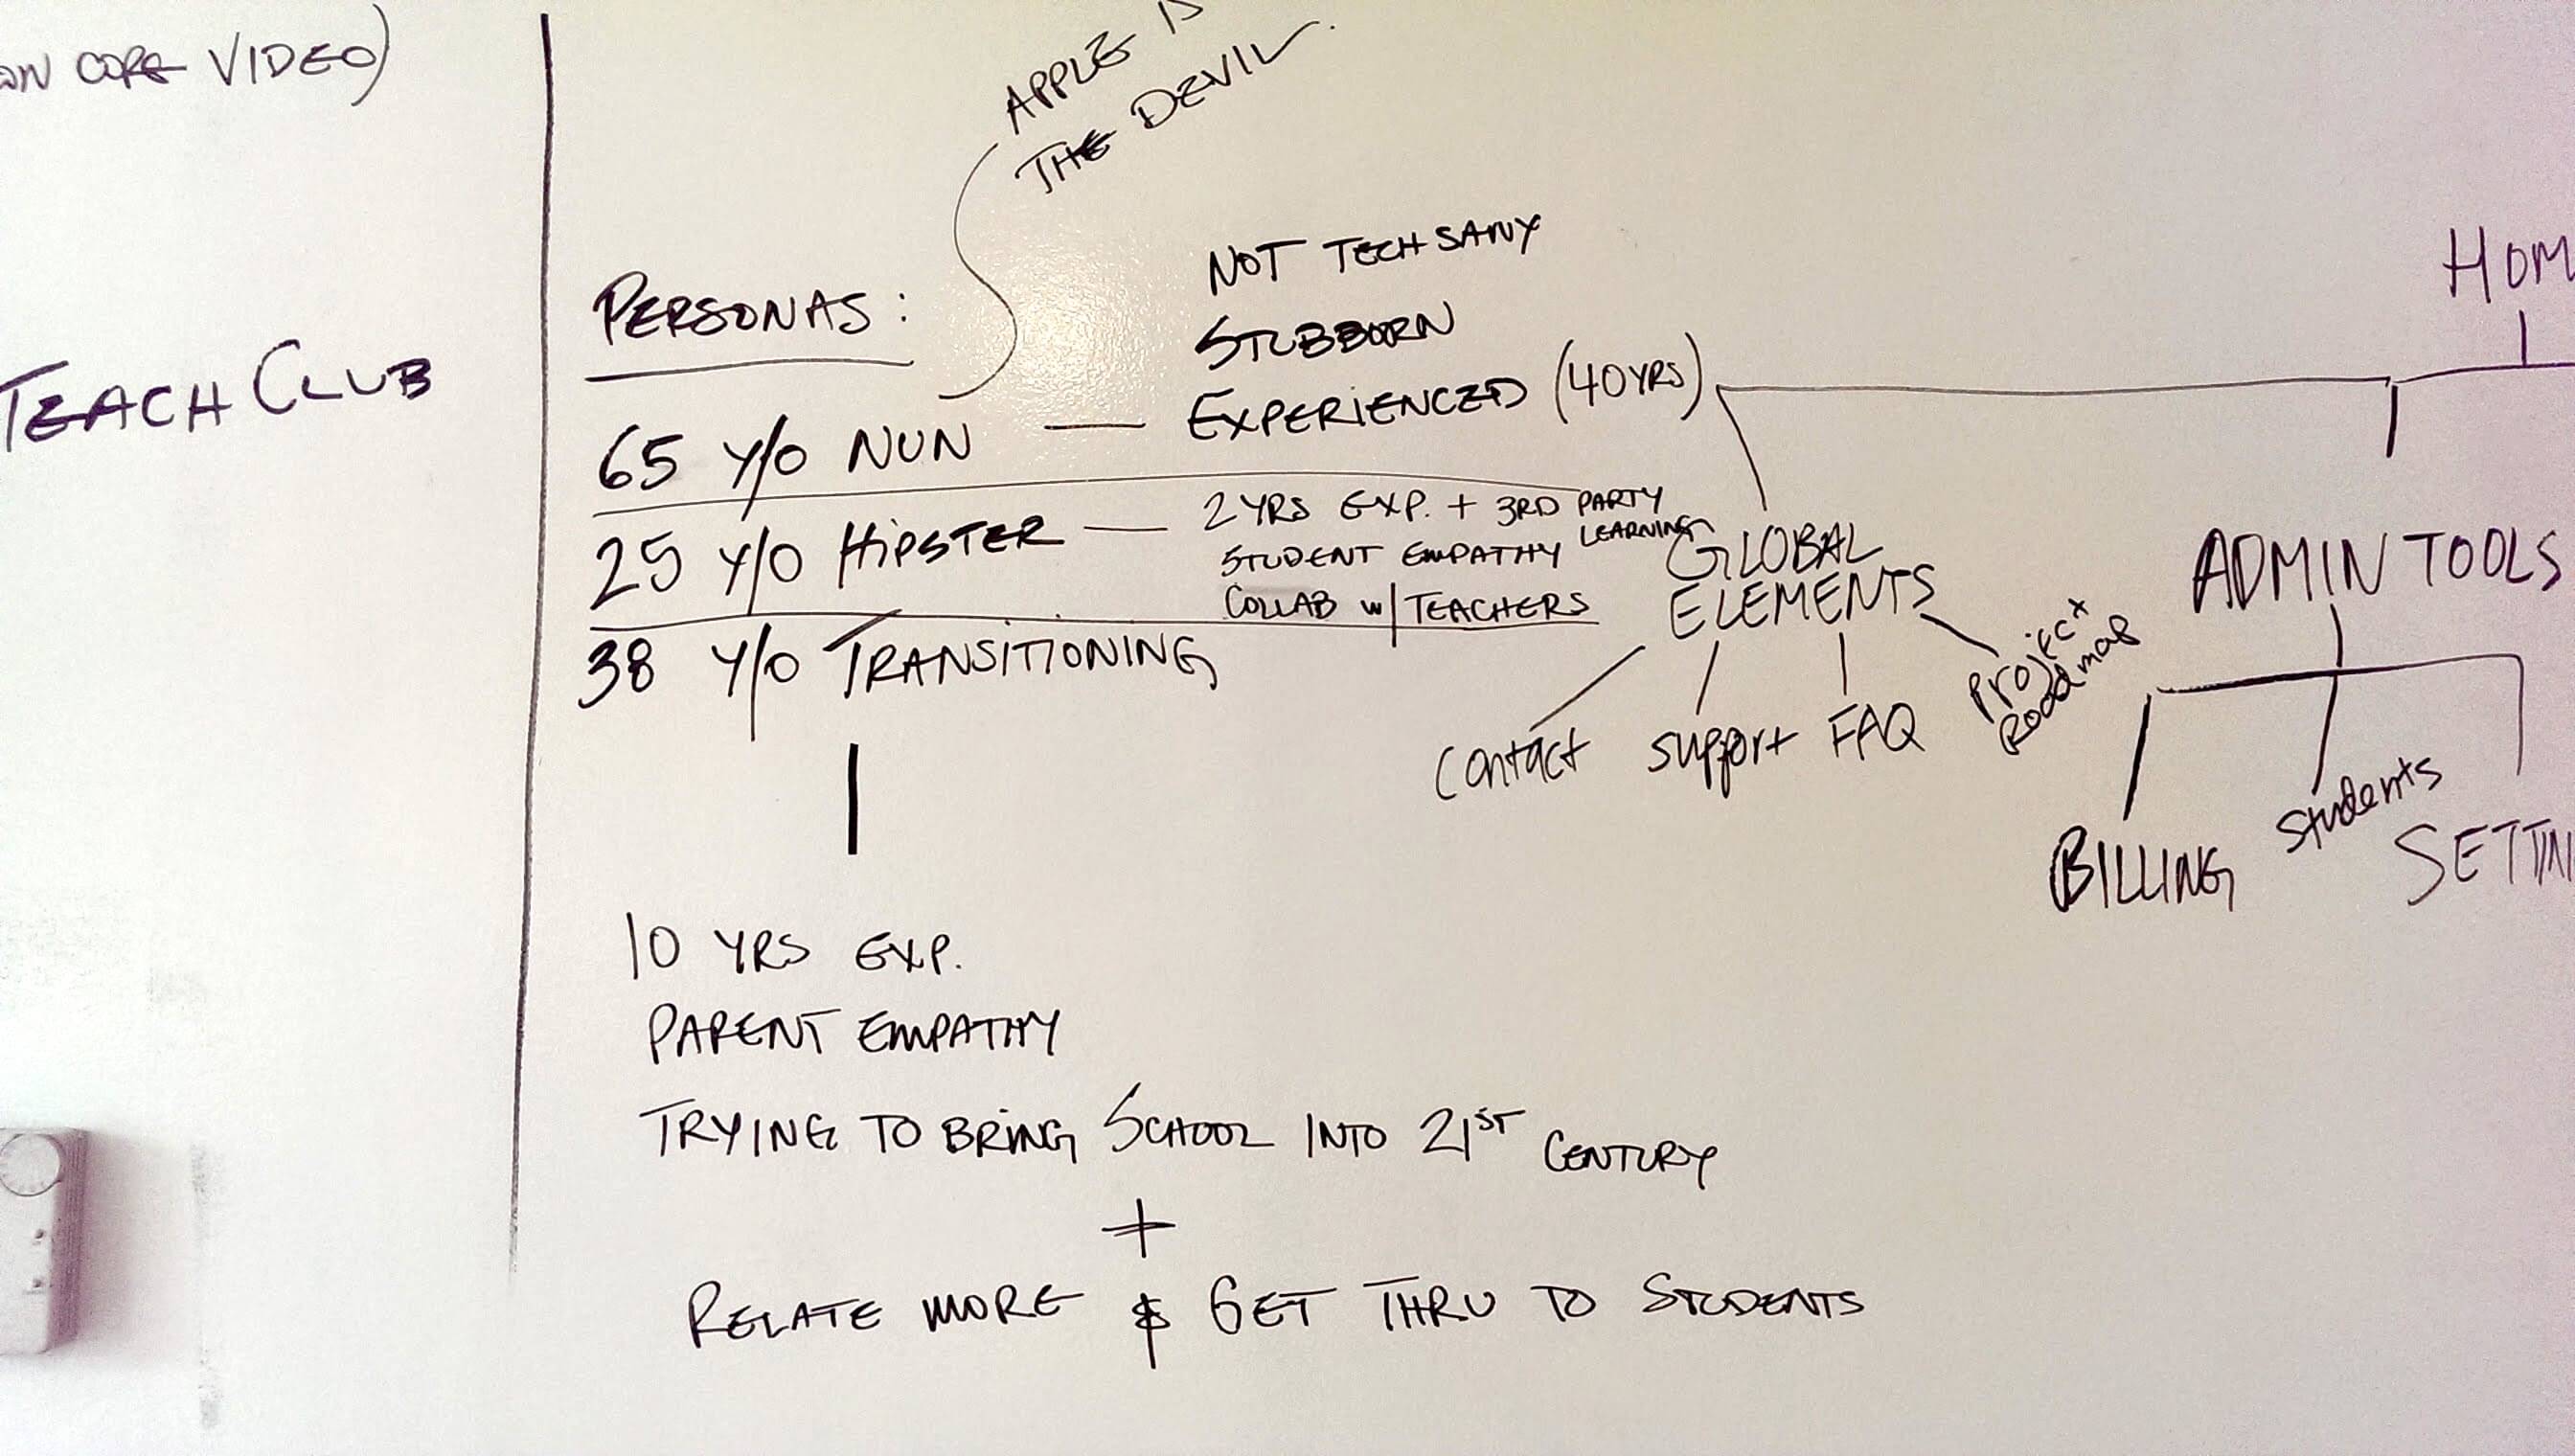 CORE VIDEO)
TEACH CLUB
APPLE IS
THE DEVIL.
PERSONAS:
65 Y/O NUN
NOT TECH SAVVY
STUBBORN
EXPERIENCED (40 YRS)
25 Y/O HIPSTER
2 YRS EXP. + 3RD PARTY
LEARNING
STUDENT EMPATHY
COLLAB W/ TEACHERS
38 Y/O TRANSITIONING
10 YRS EXP.
PARENT EMPATHY
TRYING TO BRING SCHOOL INTO 21ST CENTURY
+
RELATE MORE & GET THRU TO STUDENTS
HOM
GLOBAL
ELEMENTS
contact
support
FAQ
Project
Roadmap
ADMIN TOOLS
BILLING
students
SETTIN